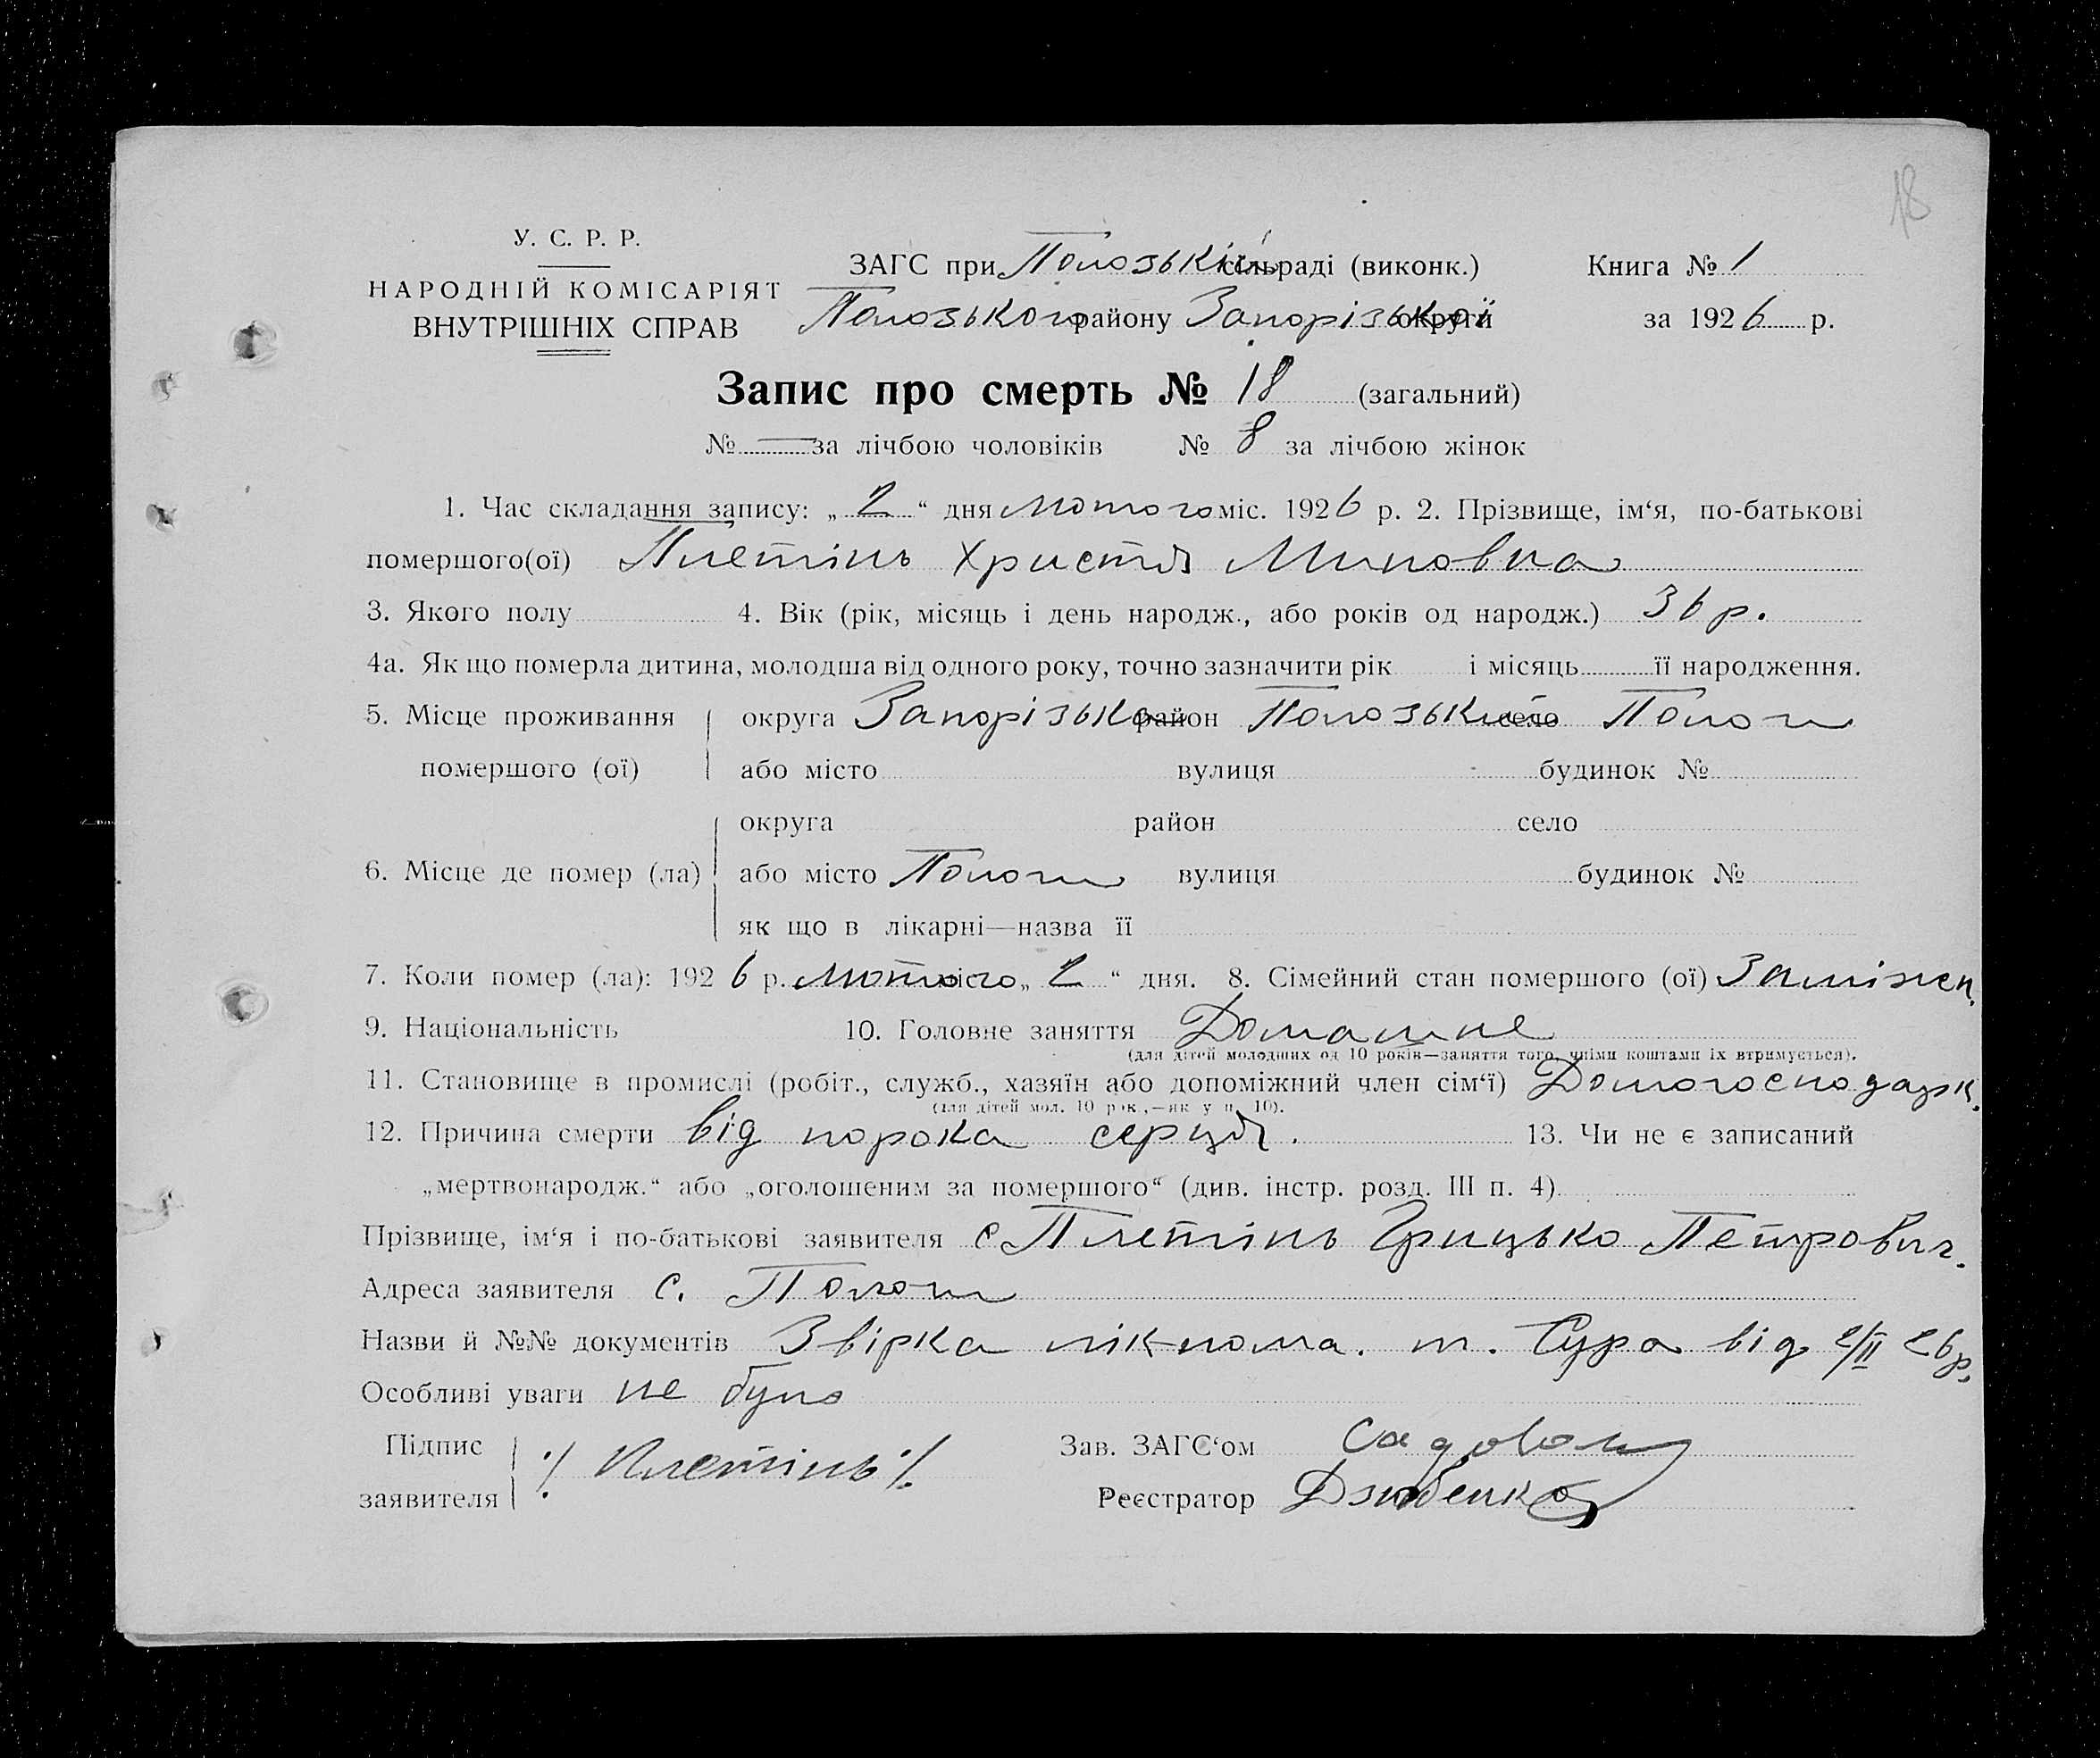 18
У. С. Р. Р.
НАРОДНІЙ КОМІСАРІЯТ
ВНУТРІШНІХ СПРАВ
ЗАГС при Пологській сільраді (виконк.) Книга № 1
Пологського району Запорізької округи за 1926 р.
Запис про смерть № 18 (загальний)
№ — за лічбою чоловіків № 8 за лічбою жінок
1. Час складання запису: „ 2 “ дня лютого міс. 1926 р. 2. Прізвище, ім‘я, по-батькові
помершого(ої) Плетінь Христя Миновна
3. Якого полу 4. Вік (рік, місяць і день народж., або років од народж.) 36 р.
4а. Як що померла дитина, молодша від одного року, точно зазначити рік і місяць її народження.
5. Місце проживання округа Запорізька район Пологський село Пологи
помершого (ої) або місто вулиця будинок №
округа район село
6. Місце де помер (ла) або місто Пологи вулиця будинок №
як що в лікарні—назва її
7. Коли помер (ла): 1926 р. лютого місяця „ 2 “ дня. 8. Сімейний стан помершого (ої) Заміжен.
9. Національність 10. Головне заняття Домашнє
(для дітей молодших од 10 років—заняття того, чиїми коштами їх втримується).
11. Становище в промислі (робіт., служб., хазяїн або допоміжний член сім‘ї) Домогосподарк.
(для дітей мол. 10 рок.,—як у п. 10).
12. Причина смерти від порока серця. 13. Чи не є записаний
„мертвонародж.“ або „оголошеним за помершого“ (див. інстр. розд. III п. 4)
Прізвище, ім‘я і по-батькові заявителя с Плетінь Грицько Петрович.
Адреса заявителя с. Пологи
Назви й №№ документів Звірка лікпома. т. Сура від 2/II 26р.
Особливі уваги не було
Підпис ./. Плетінь ./. Зав. ЗАГС‘ом
заявителя Реєстратор Дзюбенко